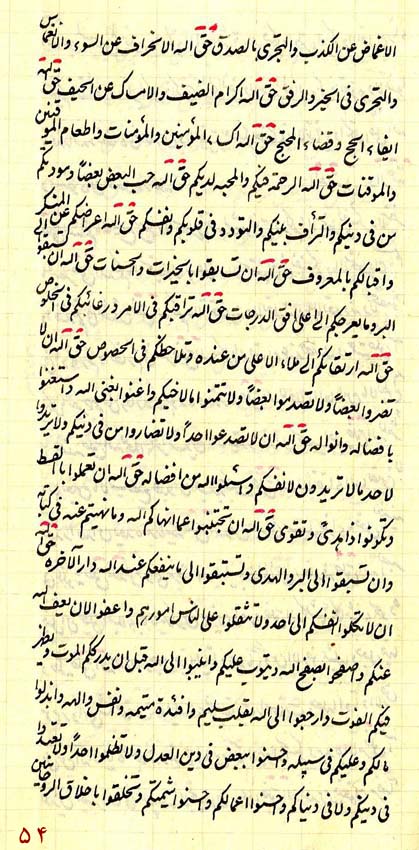 الاغماض عن الكذب والتجرى بالصدق حق اله الانحراف عن السوء والانغماس
والتجرى فى الخير والرفق حق اله اكرام الضيف والامساك عن الحيف حق اله
ايفاء الحج وقضاء المحتج حق اله اكساء المؤمنين والمؤمنات واطعام الموقنين
والموقنات حق اله الرحمة فيكم والمحبه لديكم حق اله حب البعض بعضاً ومودتكم
من فى دينكم والترأف بينكم والتودد فى قلوبكم وانفسكم حق اله اعراضكم عن المنكر
واقبالكم بالمعروف حق اله ان تسابقوا بالخيرات والحسنات حق اله ان تستبقوا الى
البر وما يعرجكم الى اعلى افق الدرجات حق اله تراقبكم فى الامر ورغائبكم فى الخلوص
حق اله ارتقائكم الى ملاء الاعلى من عنده وتلاحظكم فى الخصوص حق اله ان لا
تضروا بعضاً ولا تصدموا بعضاً ولا تتمنوا مال اخيكم واغنوا بغنى اله واستغنوا
بافضاله وانواله حق اله ان لا تصدعوا احداً ولا تضاروا من فى دينكم ولا تريدوا
لاحد مالا تريدون لانفسكم واسئلوا اله من افضاله حق اله ان تعملوا بالقسط
وتكونوا ذا هدىً وتقوى حق اله ان تجتنبوا عما انهاكم اله وما نهيتم عنه فى كتابه
وان تسبقوا الى البر والهدى وتستبقوا الى ما ينفعكم عند اله دار الآخره حق اله
ان لا تكلوا انفسكم الى احد ولا تثقلوا على الناس امورهم واعفوا لان يعف اله
عنكم واصفحوا ليصفح اله ويتوب عليكم وانيبوا الى اله قبل ان يدرككم الموت ويظهر
فيكم الفوت وارجعوا الى اله بقلب سليم وافئدة متيمه ونفس والهه وابذلوا
مالكم وعليكم فى سبيله واحسنوا ببعض فى دين العدل ولا تظلموا احداً ولا تعتدوا
فى دينكم ولا فى دنياكم واحسنوا اعمالكم واحسنوا شيمتكم وتخلقوا باخلاق الروحانيين
۵۴